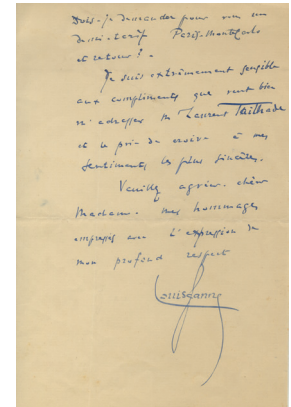 Dois-je demander pour vous un
demi-tarif Paris-Monte Carlo
et retour?.
Je suis extrêmement sensible
aux compliments que veut bien
m'adresser M Laurent Tailhade
et le prie de croire à mes
sentiments les plus sincères.
Veuillez agréer, chère
Madame, mes hommages
empressés avec l'expression de
mon profond respect
Louis Ganne